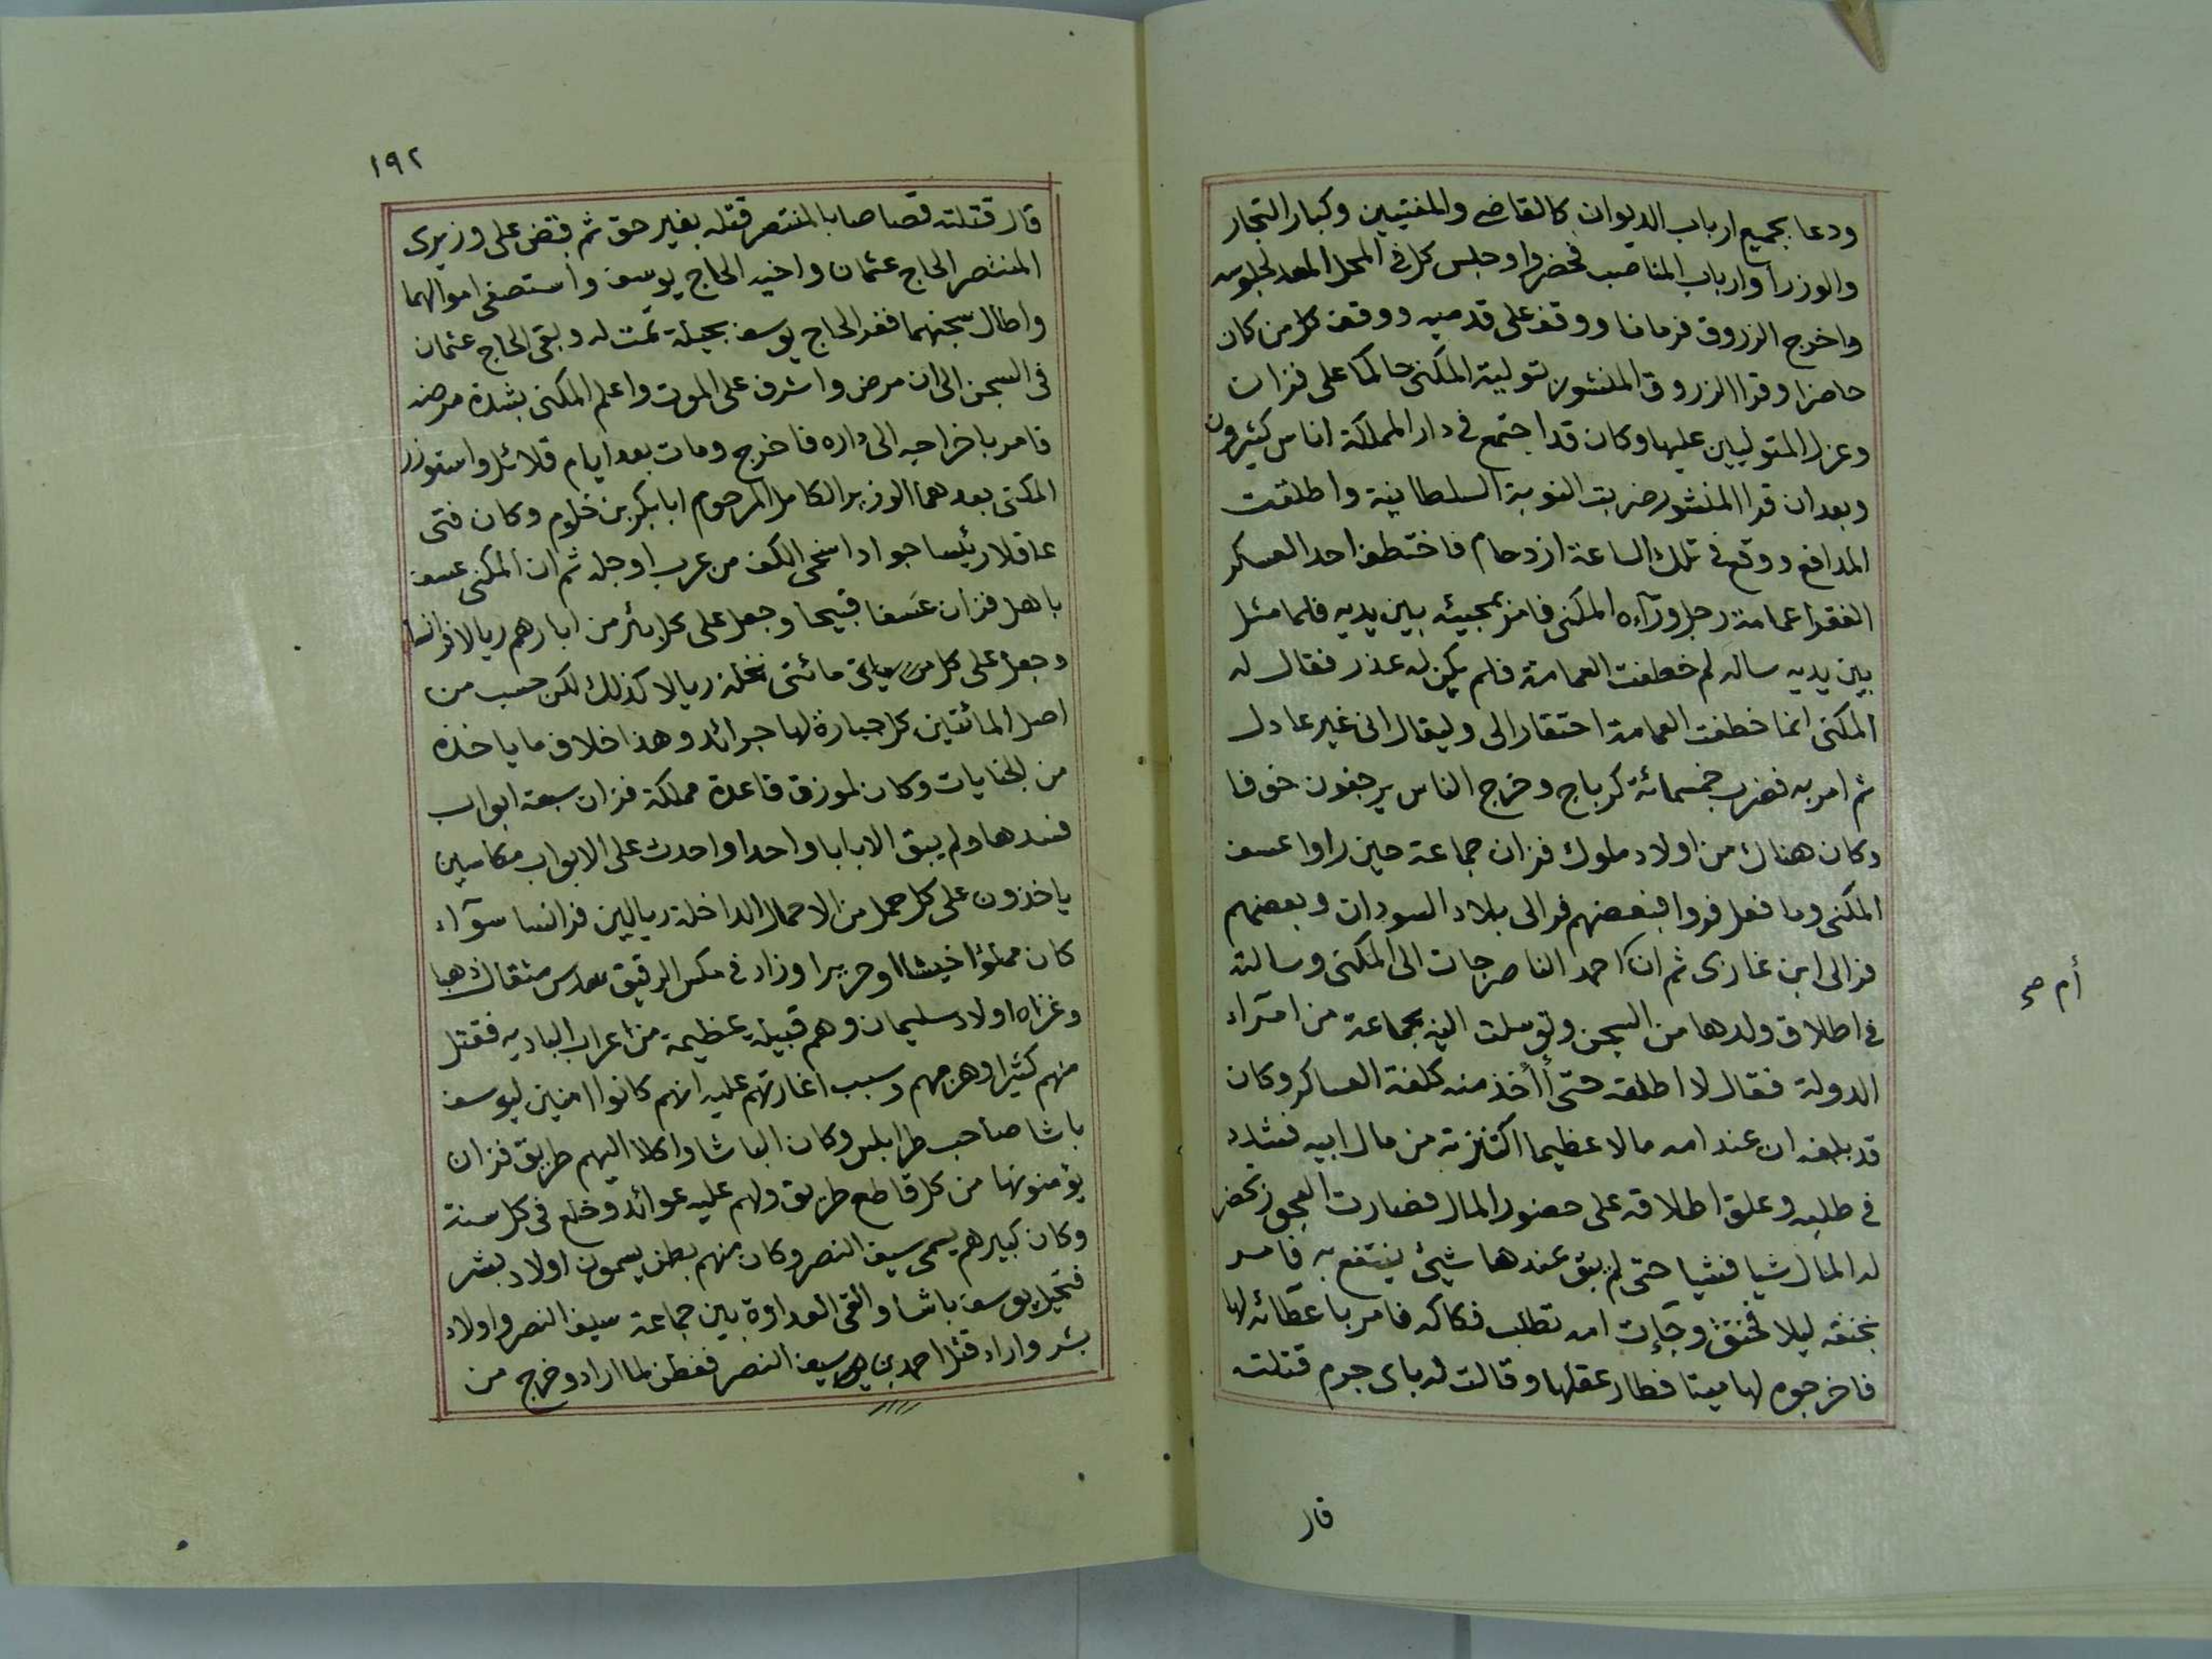 ودعا بجميع ارباب الديوان كالقاضي والمفتيين وكبار التجار
والوزرآ وارباب المناصب فحضروا وجلس كل في المحل المعد لجلوسه
واخرج الزروق فرمانا ووقف على قدميه ووقف كل من كان
حاضرا وقرا الزروق المنشور بتولية المكنى حاكما على فزان
وعزل المتوليين عليها وكان قد اجتمع في دار المملكة اناس كثيرون
وبعد ان قرا المنشور ضربت النوبة السلطانية واطلقت
المدافع ووقع في تلك الساعة ازدحام فاختطف احد العسكر
الفقرا عمامة رجل ورآه المكنى فامر بمجيئه بين يديه فلما مثل
بين يديه ساله لم خطفت العمامة فلم يكن له عذر فقال له
المكنى انما خطفت العمامة احتقارا لى وليقال انى غير عادل
ثم امر به فضرب خمسمائة كرباج وخرج الناس يرجفون خوفا
وكان هناك من اولاد ملوك فزان جماعة حين راوا عسف
المكنى وما فعل فروا فبعضهم فر الى بلاد السودان وبعضهم
فر الى ابن غازى ثم ان احمد الناصر جات الى المكنى وسالته
أم صح
في اطلاق ولدها من السجن وتوسلت اليه بجماعة من امرآء
الدولة فقال لا اطلقه حتى أأخذ منه كلفة العساكر وكان
قد بلغه ان عند امه مالا عظيما اكتنزته من مال ابيه فشدد
في طلبه وعلق اطلاقه على حضور المال فصارت العجوز تحضر
له المال شيا فشيا حتى لم يبق عندها شيئ ينتفع به فامر
بخنقه ليلا فخنق وجآت امه تطلب فكاكه فامر باعطائه لها
فاخرجوه لها ميتا فطار عقلها وقالت له باى جرم قتلته
قال
١٩٢
قال قتلته قصاصا بالمنتصر قتله بغير حق ثم قبض على وزيرى
المنتصر الحاج عثمان واخيه الحاج يوسف واستصفى اموالهما
واطال سجنهما ففر الحاج يوسف بحيلة تمت له وبقى الحاج عثمان
فى السجن الى ان مرض واشرف على الموت واعلم المكنى بشدة مرضه
فامر باخراجه الى داره فاخرج ومات بعد ايام قلائل واستوزر
المكنى بعدهما الوزير الكامل المرحوم ابابكر بن خلوم وكان فتى
عاقلا رئيسا جوادا سخى الكف من عرب اوجله ثم ان المكنى عسف
باهل فزان عسفا قبيحا وجعل على كل بئر من ابارهم ريالا فرانسا
وجعل على كل مائتى نخلة ريالا كذلك لكن حسب من
اصل المائتين كل جبارة لها جرائد وهذا خلاف ما ياخذه
من الجنايات وكان لمرزق قاعدة مملكة فزان سبعة ابواب
فسدها ولم يبق الا بابا واحدا واحدث على الابواب مكاسين
ياخذون على كل حمل من الاحمال الداخلة ريالين فرانسا سوآء
كان مملؤا خيشا او حريرا وزاد في مكس الرقيق سدس مثقال ذهبا
وغزاه اولاد سليمان وهم قبيلة عظيمة من اعراب البادية فقتل
منهم كثيرا وهزمهم وسبب اغارتهم عليه انهم كانوا امنين ليوسف
باشا صاحب طرابلس وكان الباشا واكلا اليهم طريق فزان
يؤمنونها من كل قاطع طريق ولهم عليه عوائد وخلع فى كل سنة
وكان كبيرهم يسمى سيف النصر وكان منهم بطن يسمون اولاد بشر
فتحيل يوسف باشا والقى العداوة بين جماعة سيف النصر واولاد
بشر واراد قتل احمد بن سيف النصر ففطن لما اراد وخرج من